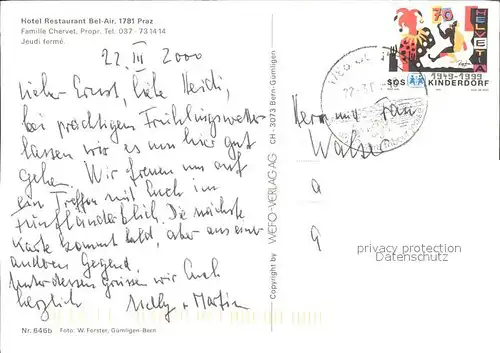 Hotel Restaurant Bel-Air. 1781 Praz
Famille Chervet, Propr. Tel. 037 - 73 14 14
Jeudi fermé.
22. III 2000
Lieber Ernst, liebe Heidi,
bei prächtigem Frühlingswetter
lassen wir es uns hier gut
gehen. Wir freuen uns auf
ein Treffen mit Euch im
Fünfländerblick. Die nächste
Karte kommt bald, aber aus einer
anderen Gegend.
Unterdessen grüssen wir Euch
herzlich Nelly + Martin
Nr. 646b Foto: W. Förster, Gümligen-Bern
Copyright by WEFO-VERLAG-AG CH - 3073 Bern-Gümligen
HELVETIA
70
1949-1999
SOS KINDERDORF
Herrn und Frau
Walser
privacy protection
Datenschutz